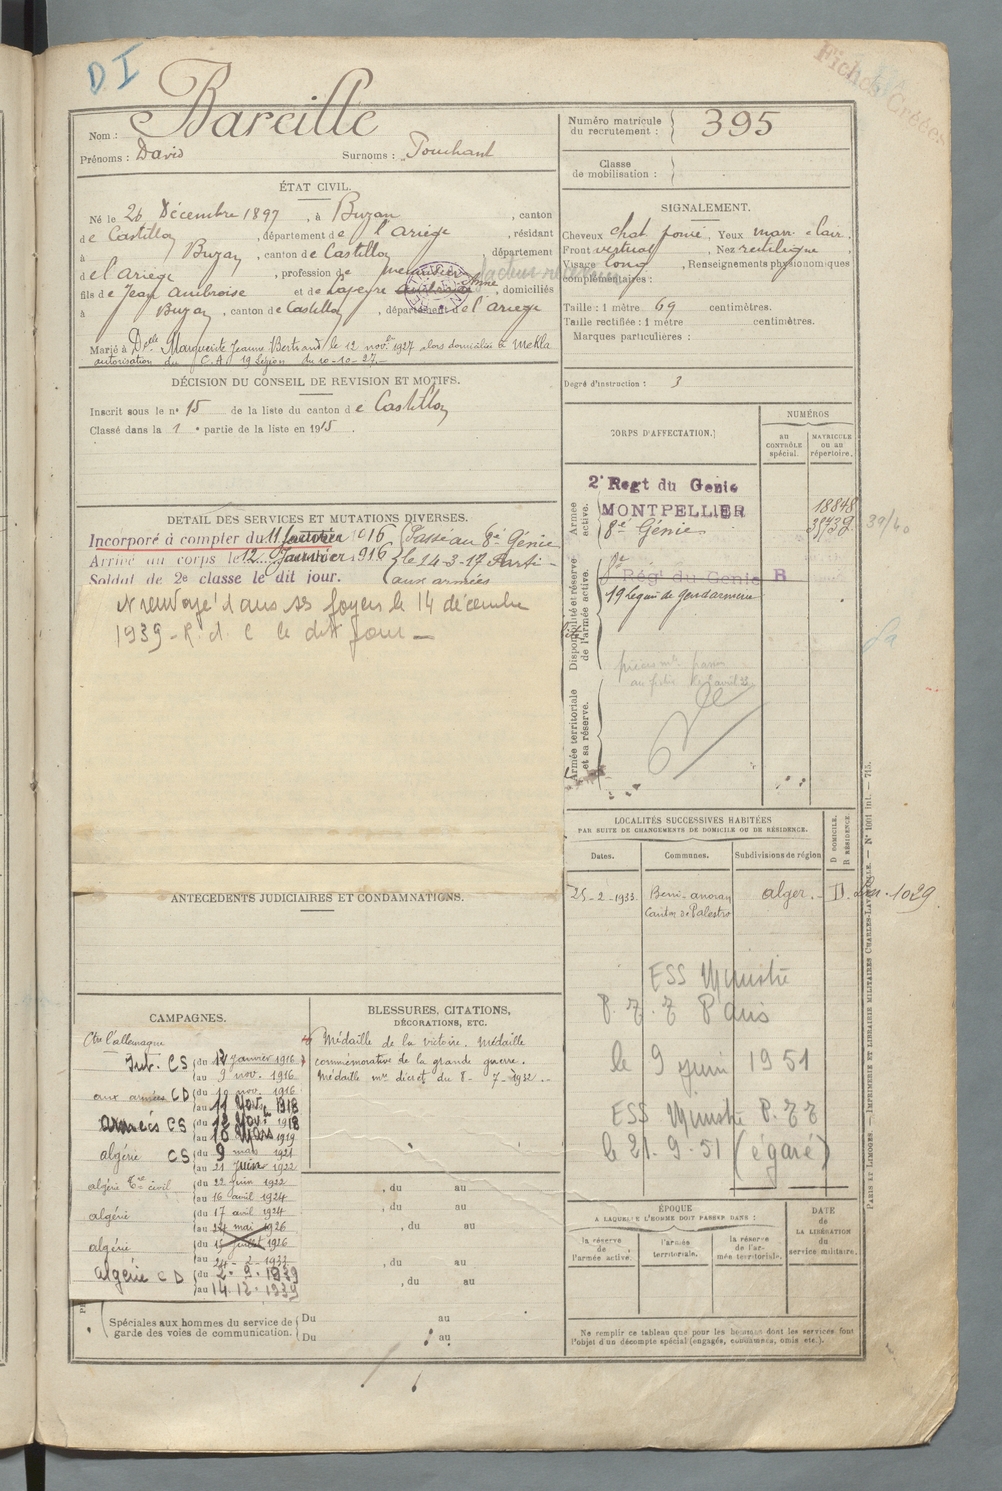 D I
Fiches
Bareille
Nom :
Prénoms : David Surnoms : Pouchant
Numéro matricule
du recrutement : 395
Classe
de mobilisation :
ÉTAT CIVIL.
Né le 26 Décembre 1897, à Buzan, canton
de Castillon, département de l'Ariège, résidant
à Buzan, canton de Castillon, département
de l'Ariège, profession de menuisier
fils de Jean Ambroise et de Lafeyre Anne, domiciliés
à Buzan, canton de Castillon, département de l'Ariège
Marié à Delle Marguerite Jeanne Bertrand le 12 novbre 1927 alors domiciliée à Mekla
autorisation du C.A 19 Légion du 10-10-27.-
SIGNALEMENT.
Cheveux chat. foncé, Yeux marr. clair.
Front vertical, Nez rectiligne
Visage long, Renseignements physionomiques
complémentaires :
Taille : 1 mètre 69 centimètres.
Taille rectifiée : 1 mètre centimètres.
Marques particulières :
Degré d'instruction : 3
DÉCISION DU CONSEIL DE REVISION ET MOTIFS.
Inscrit sous le n° 15 de la liste du canton de Castillon
Classé dans la 1e partie de la liste en 1915.
CORPS D'AFFECTATION.
NUMÉROS
AU CONTRÔLE spécial.
MATRICULE OU AU répertoire.
Armée active.
2e Regt du Genie
MONTPELLIER
8e Génie
18848
39/40
Disponibilité et réserve de l'armée active.
8e
Régt du Genie R
19 Légion de Gendarmerie
Armée territoriale et sa réserve.
DETAIL DES SERVICES ET MUTATIONS DIVERSES.
Incorporé à compter du 11 Janvier 1916
Arrivé au corps le 12 Janvier 1916
Soldat de 2e classe le dit jour.
Passé au 8e Génie
le 14-3-17 Parti
aux armées
et renvoyé dans ses foyers le 14 décembre
1939 - R. d. C le dit jour -
LOCALITÉS SUCCESSIVES HABITÉES
PAR SUITE DE CHANGEMENTS DE DOMICILE OU DE RÉSIDENCE.
Dates. Communes. Subdivisions de région
D DOMICILE.
R RÉSIDENCE.
25-2-1933. Beni-Amran alger.- D.
Canton de Palestro
1029
ANTÉCÉDENTS JUDICIAIRES ET CONDAMNATIONS.
ESS Ministre
P. T. T Paris
le 9 juin 1951
ESS Ministre P. T T
le 21. 9. 51 (égaré)
CAMPAGNES.
Ctre l'allemagne
Int. CS du 12 janvier 1916
au 9 nov. 1916
aux armées CD du 10 nov. 1916
au 11 Nov. 1918
armées CS du 12 Nov. 1918
au 10 Mars 1919
algérie CS du 9 mai 1921
au 21 juin 1922
algérie Tre civil du 22 juin 1922
au 16 avril 1924
algérie du 17 avril 1924
au 24 mai 1926
algérie du 15 juillet 1926
au 24-2-1933
algérie CD du 2.9.1939
au 14.12.1939
BLESSURES, CITATIONS,
DÉCORATIONS, ETC.
Médaille de la victoire. Médaille
commémorative de la grande guerre.
Médaille mre décret du 8-7-1932.-
, du au
, du au
, du au
, du au
, du au
Spéciales aux hommes du service de
garde des voies de communication.
Du au
Du au
ÉPOQUE
A LAQUELLE L'HOMME DOIT PASSER DANS :
la réserve de l'armée active.
l'armée territoriale.
la réserve de l'armée territoriale.
DATE de LA LIBÉRATION du service militaire.
Ne remplir ce tableau que pour les hommes dont les services font
l'objet d'un décompte spécial (engagés, condamnés, omis etc.).
PARIS ET LIMOGES. — IMPRIMERIE ET LIBRAIRIE MILITAIRES CHARLES-LAVAUZELLE. — N° 1001 int. — 715.